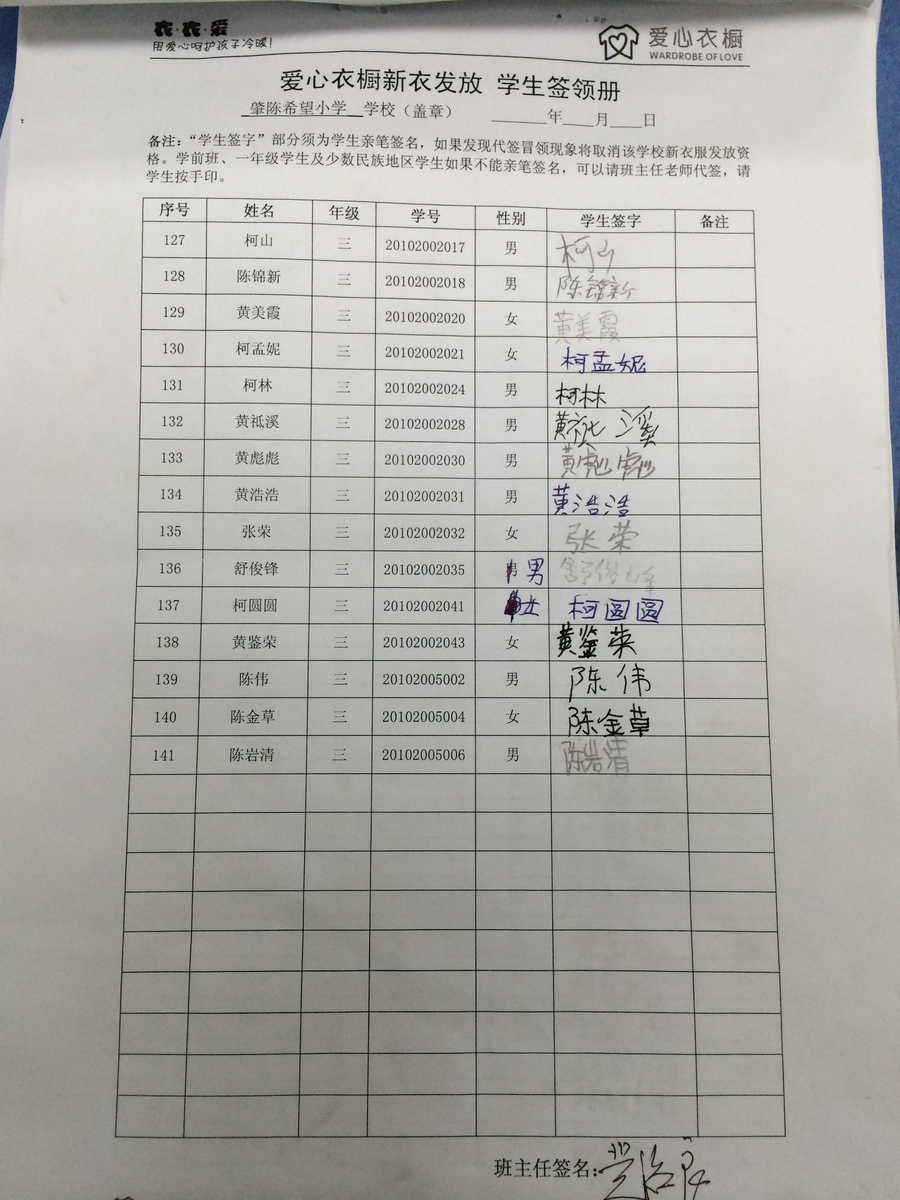 衣·衣·爱
用爱心呵护孩子冷暖!
爱心衣橱
WARDROBE OF LOVE
爱心衣橱新衣发放 学生签领册
肇陈希望小学 学校（盖章） ______年____月____日
备注：“学生签字”部分须为学生亲笔签名，如果发现代签冒领现象将取消该学校新衣服发放资
格。学前班、一年级学生及少数民族地区学生如果不能亲笔签名，可以请班主任老师代签，请
学生按手印。
序号 姓名 年级 学号 性别 学生签字 备注
127 柯山 三 20102002017 男 柯山
128 陈锦新 三 20102002018 男 陈锦新
129 黄美霞 三 20102002020 女 黄美霞
130 柯孟妮 三 20102002021 女 柯孟妮
131 柯林 三 20102002024 男 柯林
132 黄祗溪 三 20102002028 男 黄祗溪
133 黄彪彪 三 20102002030 男 黄彪彪
134 黄浩浩 三 20102002031 男 黄浩浩
135 张荣 三 20102002032 女 张荣
136 舒俊锋 三 20102002035 男 舒俊锋
137 柯圆圆 三 20102002041 女 柯圆圆
138 黄鉴荣 三 20102002043 女 黄鉴荣
139 陈伟 三 20102005002 男 陈伟
140 陈金草 三 20102005004 女 陈金草
141 陈岩清 三 20102005006 男 陈岩清
班主任签名: